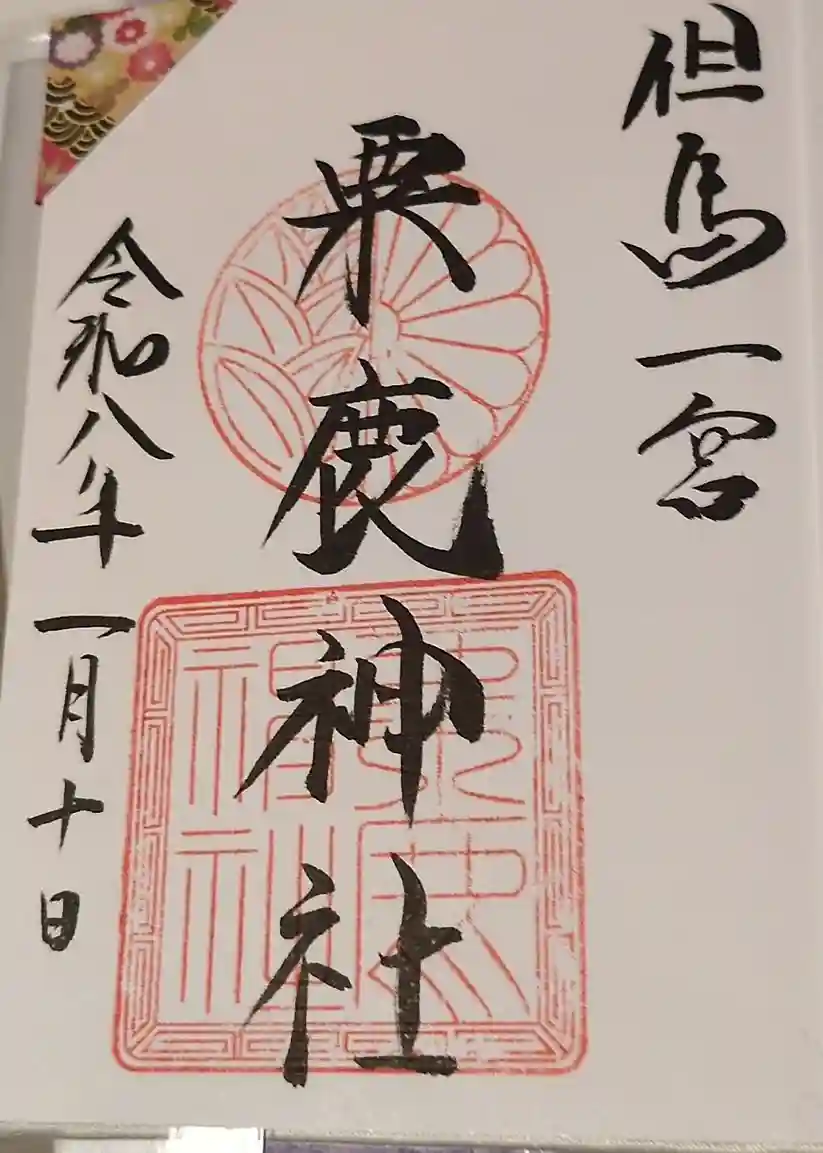 但馬一宮
粟鹿神社
令和八年一月十日
粟鹿神社